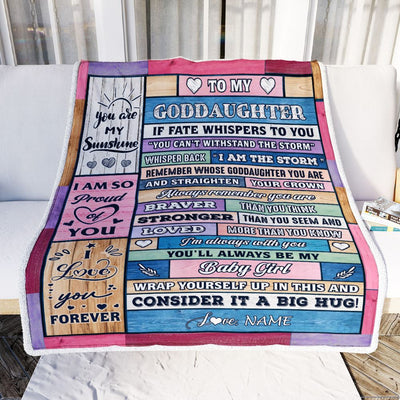 You are
MY
Sunshine
I AM SO
Proud
of
YOU
I
Love
you
FOREVER
TO MY
GODDAUGHTER
IF FATE WHISPERS TO YOU
"YOU CAN'T WITHSTAND THE STORM"
WHISPER BACK "I AM THE STORM"
REMEMBER WHOSE GODDAUGHTER YOU ARE
AND STRAIGHTEN YOUR CROWN
Always remember you are
BRAVER THAN YOU THINK
STRONGER THAN YOU SEEM AND
LOVED MORE THAN YOU KNOW
I'm always with you
YOU'LL ALWAYS BE MY
Baby Girl
WRAP YOURSELF UP IN THIS AND
CONSIDER IT A BIG HUG!
Love, NAME